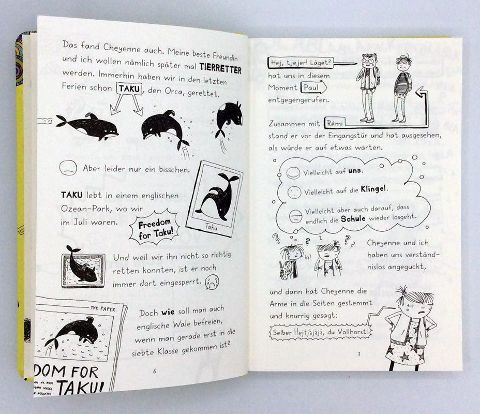 Das fand Cheyenne auch. Meine beste Freundin
und ich wollen nämlich später mal TIERRETTER
werden. Immerhin haben wir in den letzten
Ferien schon TAKU, den Orca, gerettet.
Aber leider nur ein bisschen.
TAKU lebt in einem englischen
Ozean-Park, wo wir
im Juli waren.
Freedom
for Taku!
Taku
Und weil wir ihn nicht so richtig
retten konnten, ist er noch
immer dort eingesperrt.
Doch wie soll man auch
englische Wale befreien,
wenn man gerade erst in die
siebte Klasse gekommen ist?
THE PAPER
DOM FOR
TAKU!
6
Hej, tjejer! Läget?
hat uns in diesem
Moment Paul
entgegengerufen.
Zusammen mit Rémi
stand er vor der Eingangstür und hat ausgesehen,
als würde er auf etwas warten.
Vielleicht auf uns.
Vielleicht auf die Klingel.
Vielleicht aber auch darauf, dass
endlich die Schule wieder losgeht.
Cheyenne und ich
haben uns verständ-
nislos angeguckt,
und dann hat Cheyenne die
Arme in die Seiten gestemmt
und knurrig gesagt:
Selber
du Vollhorst.